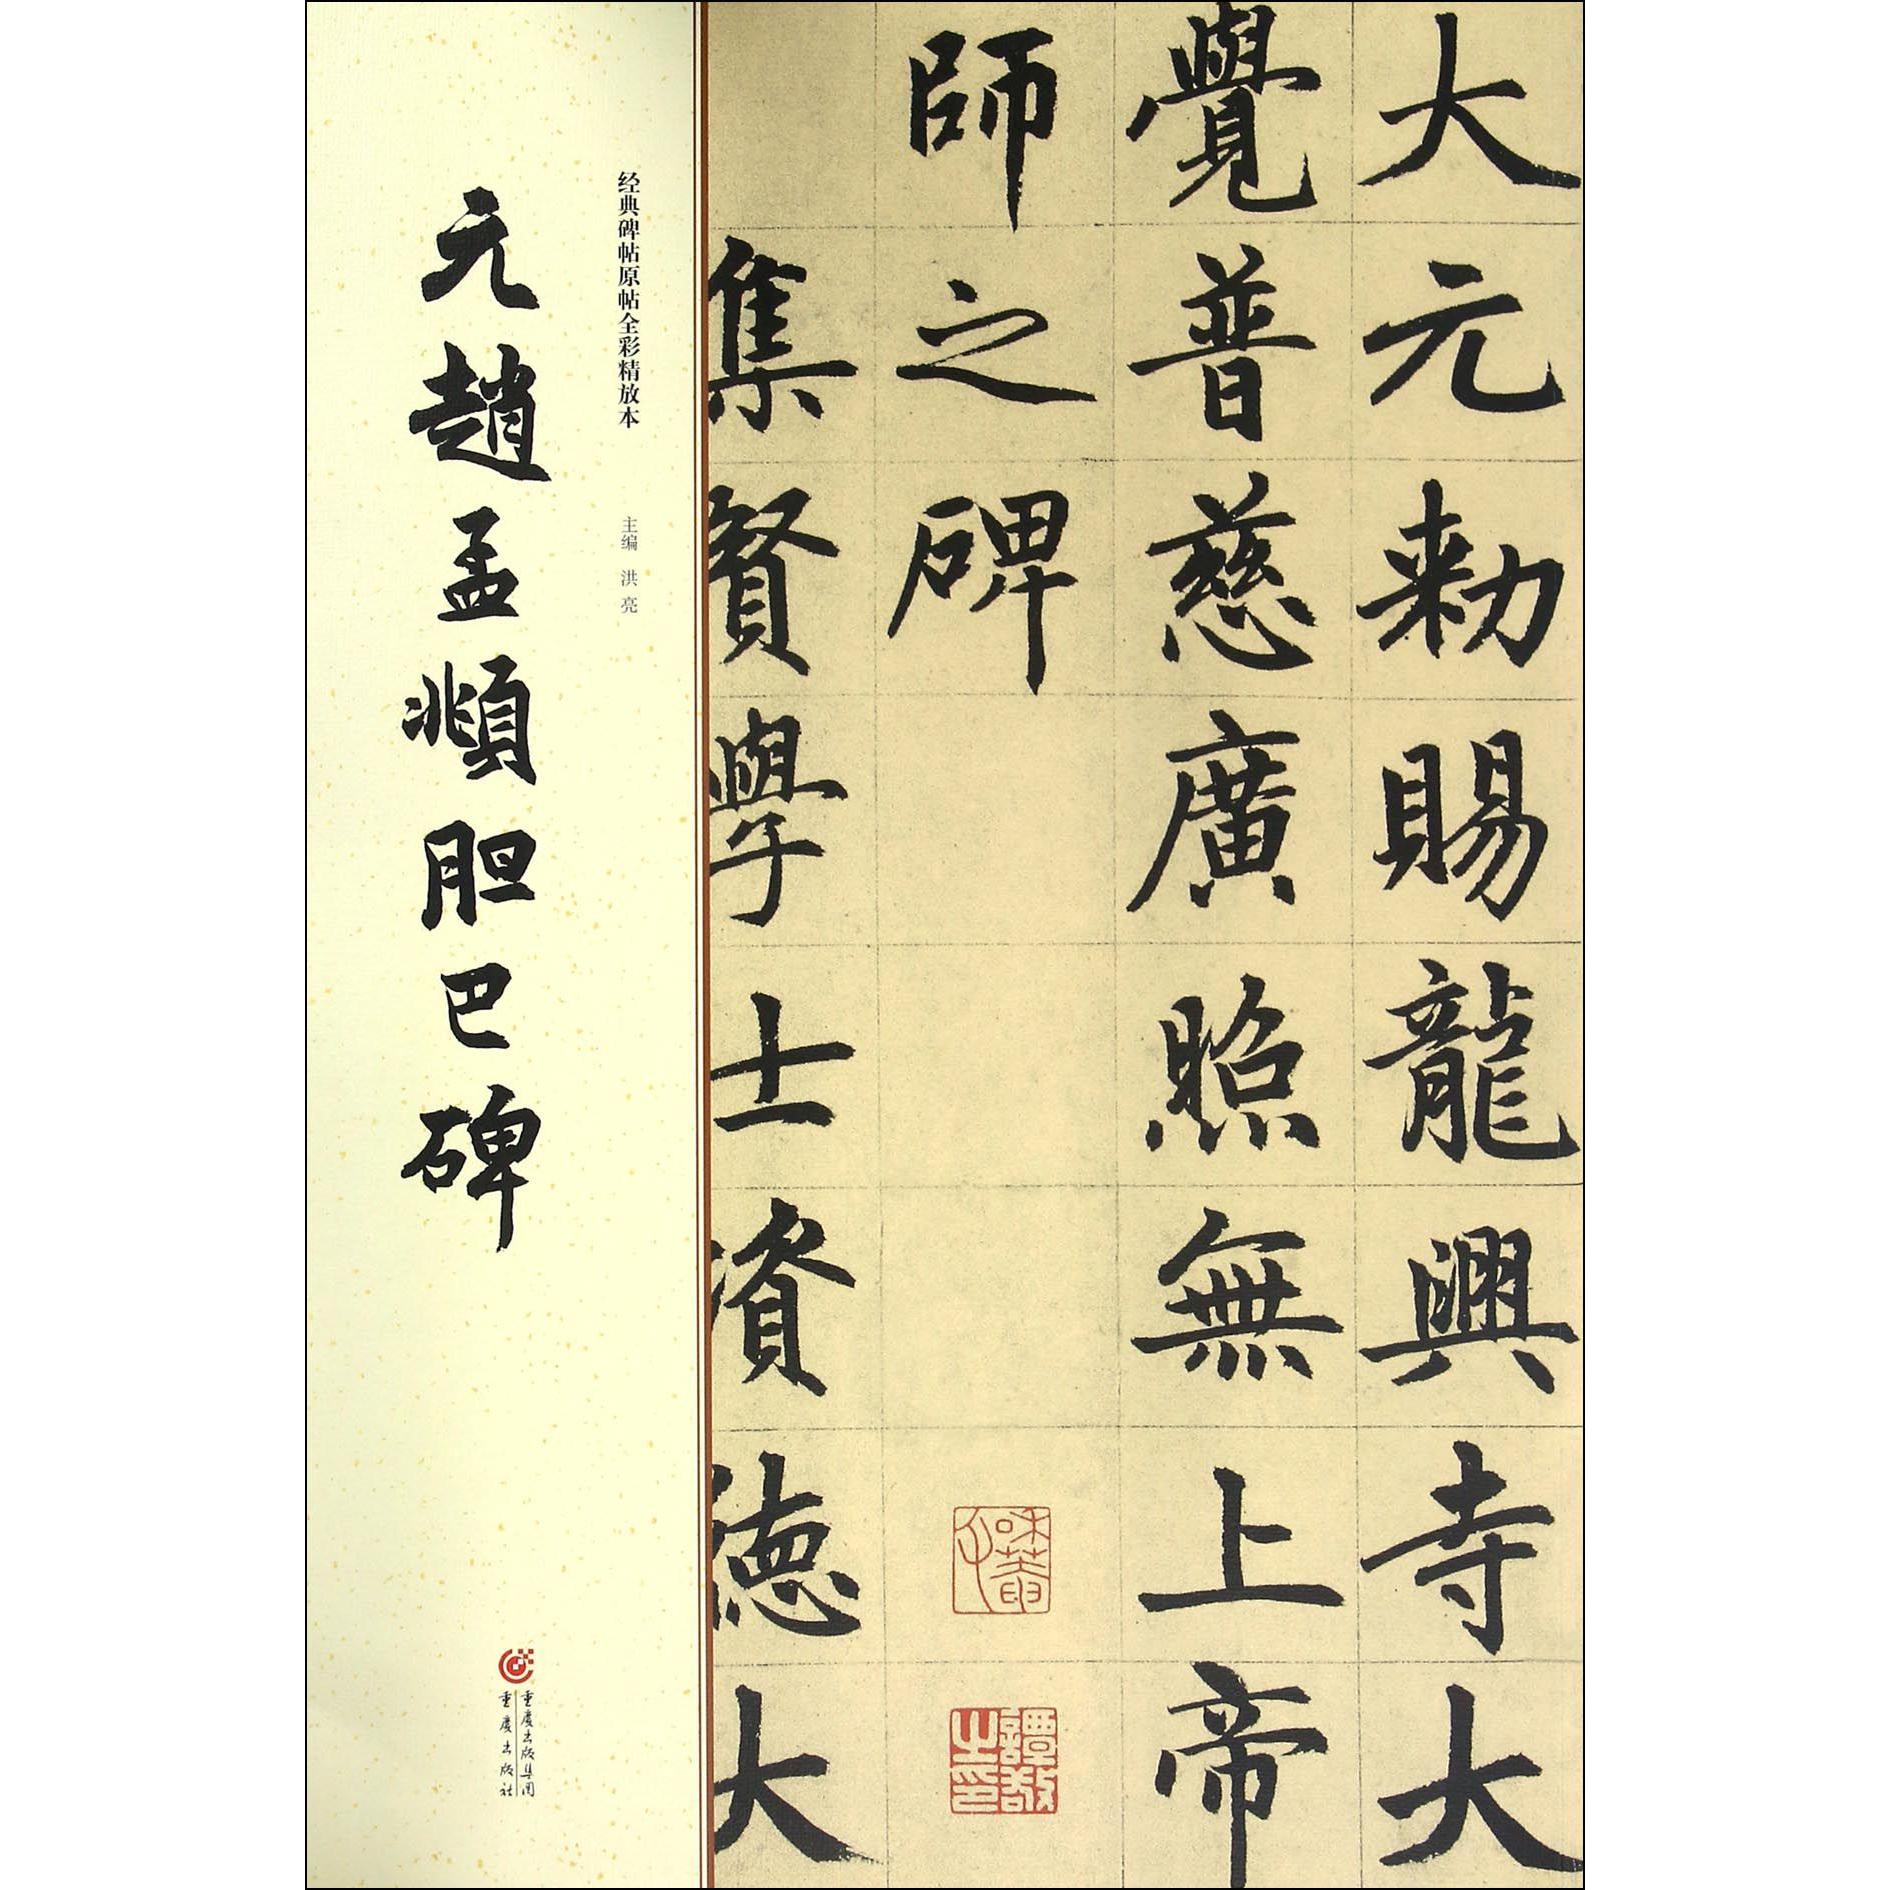 大元勅賜龍興寺大
覺普慈廣照無上帝
師之碑
譚敬之印
集賢學士資德大
经典碑帖原帖全彩精放本
主编 洪亮
元趙孟頫胆巴碑
重庆出版集团
重庆出版社